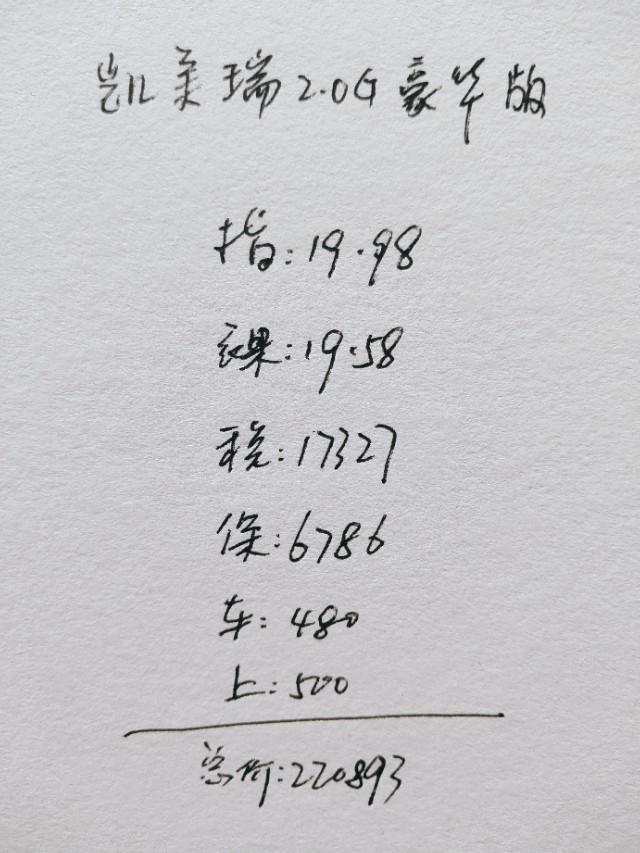 凯美瑞2.0G豪华版
指:19.98
裸:19.58
税:17327
保:6786
车:480
上:500
总价:220893